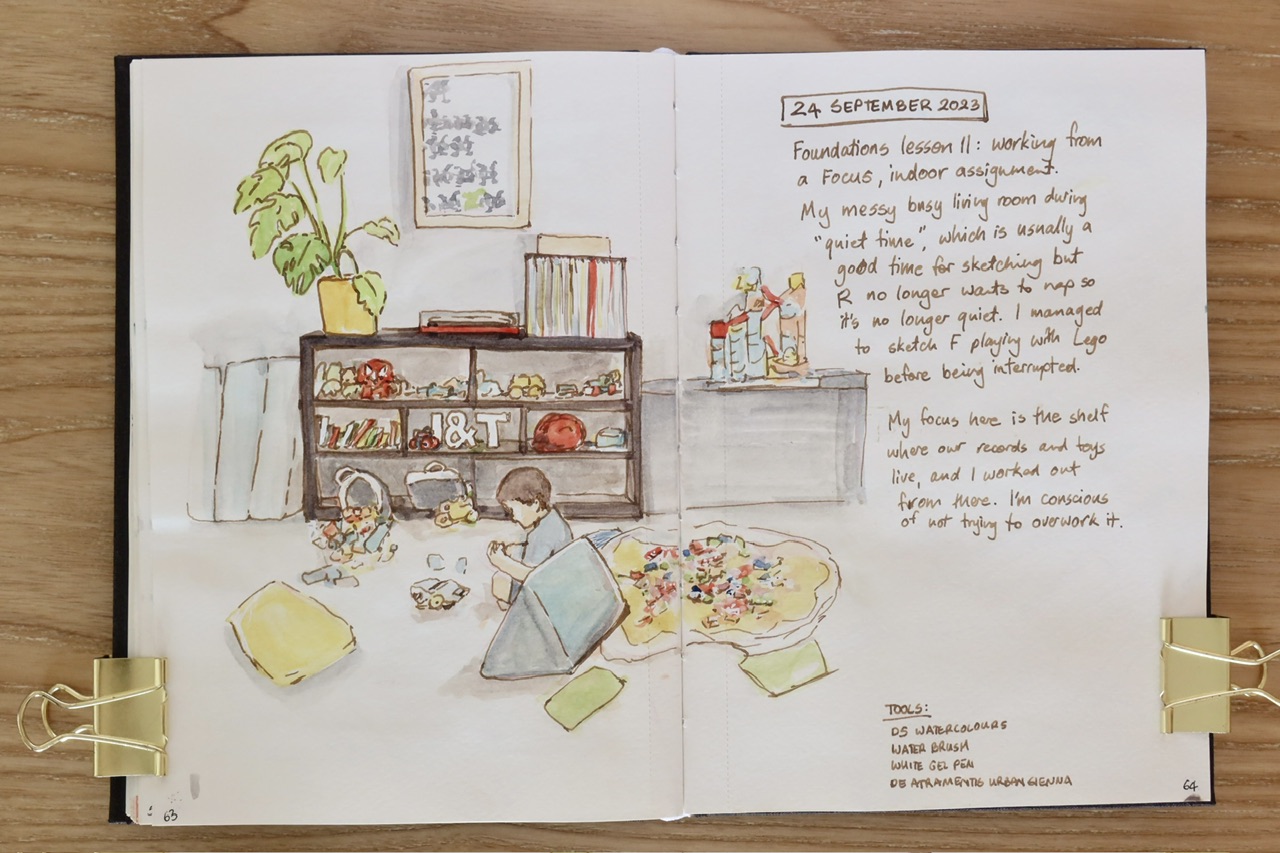 24 SEPTEMBER 2023
Foundations lesson 11: working from
a Focus, indoor assignment.
My messy busy living room during
"quiet time", which is usually a
good time for sketching but
R no longer wants to nap so
it's no longer quiet. I managed
to sketch F playing with Lego
before being interrupted.
My focus here is the shelf
where our records and toys
live, and I worked out
from there. I'm conscious
of not trying to overwork it.
I&T
TOOLS:
DS WATERCOLOURS
WATER BRUSH
WHITE GEL PEN
DE ATRAMENTIS URBAN SIENNA
63
64